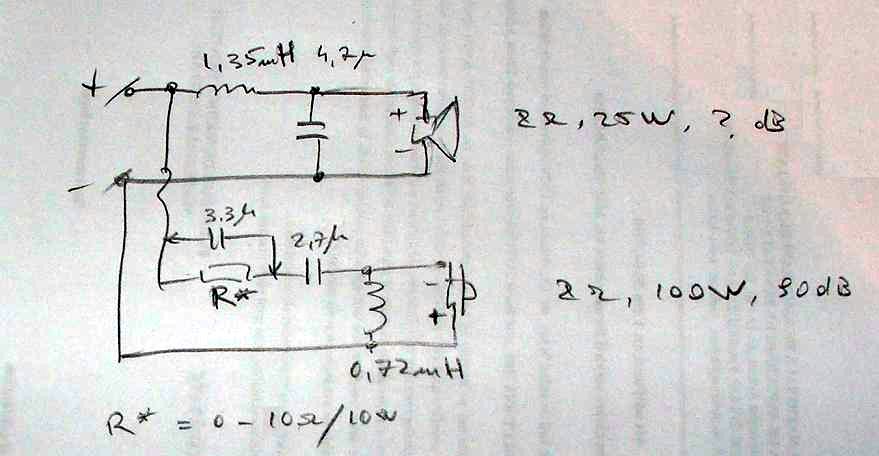 1,35mH 4,7μ
+
+
8Ω, 25W, ? dB
-
-
3.3μ
2,7μ
R*
-
+
8Ω, 100W, 90dB
0,72mH
R* = 0 - 10Ω/10W